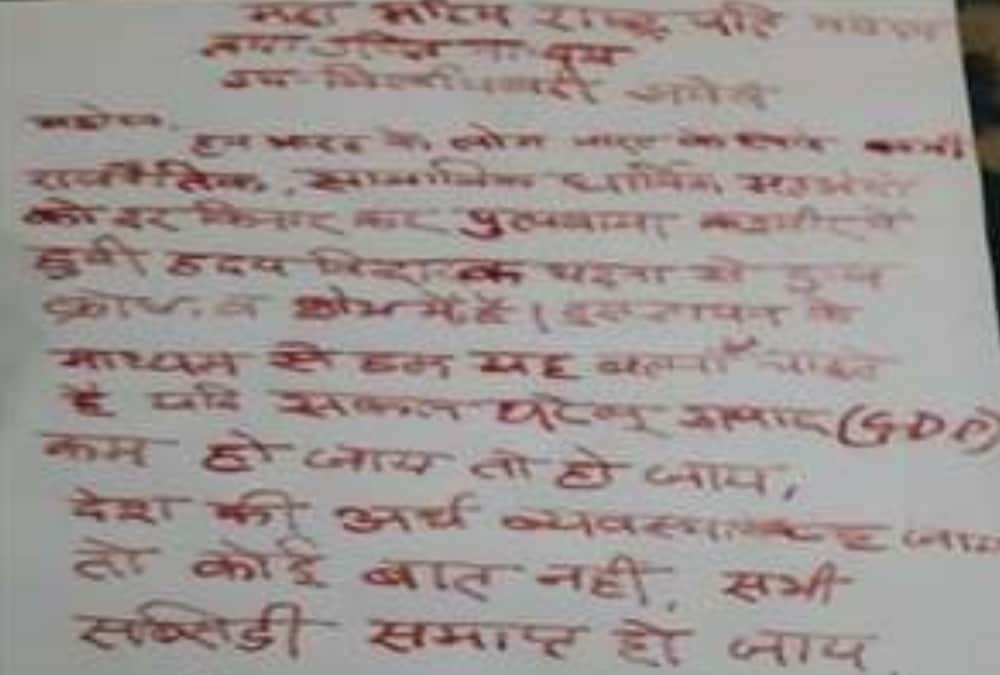 महा महिम राष्ट्र पति
द्वारा
उप जिलाधिकारी
महोदय,
हम भारत के लोग भारत के
राजनैतिक, सामाजिक धार्मिक
को दर किनार कर पुलवामा कश्मीर में
हुयी हृदय विदारक घटना से दुःख
क्रोध व क्षोभ में है। इस ज्ञापन के
माध्यम से हम यह कहना चाहते
है यदि सकल घरेलू उत्पाद (GDP)
कम हो जाय तो हो जाय,
देश की अर्थ व्यवस्था जाय
तो कोई बात नही, सभी
सब्सिडी समाप्त हो जाय,